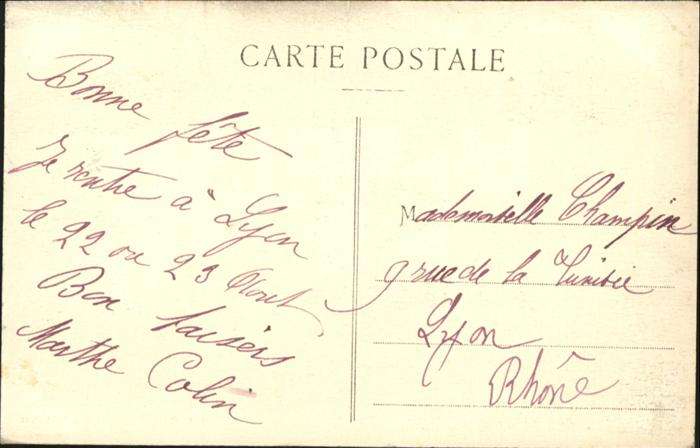 CARTE POSTALE
Bonne fête
Je rentre à Lyon
le 22 ou 23 Août
Bon baisers
Marthe Colin
Mademoiselle Champin
9 rue de la Tunisie
Lyon
Rhône